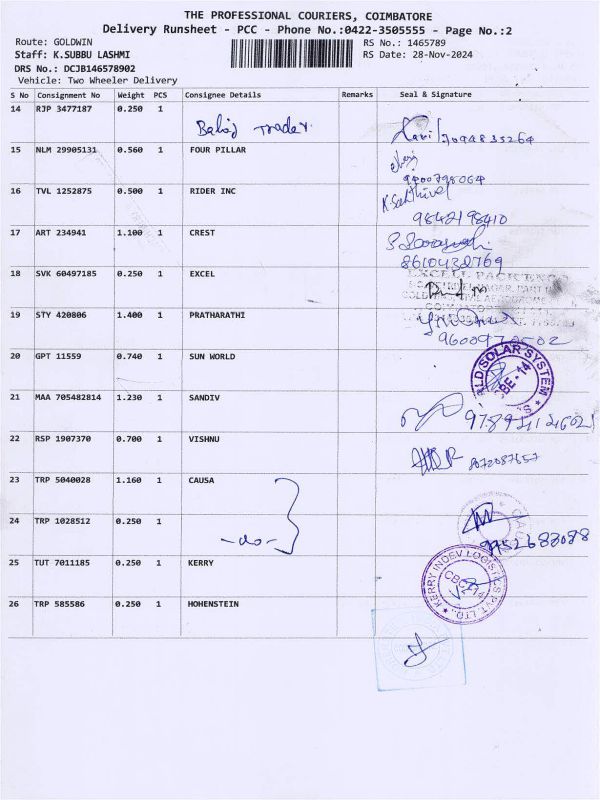 THE PROFESSIONAL COURIERS, COIMBATORE
Delivery Runsheet - PCC - Phone No.:0422-3505555 - Page No.:2
Route: GOLDWIN
RS No.: 1465789
Staff: K.SUBBU LASHMI
RS Date: 28-Nov-2024
DRS No.: DCJB146578902
Vehicle: Two Wheeler Delivery
S No Consignment No Weight PCS Consignee Details Remarks Seal & Signature
14 RJP 3477187 0.250 1
Balaj Trader
15 NLM 29905131 0.560 1 FOUR PILLAR
16 TVL 1252875 0.500 1 RIDER INC
9842198410
17 ART 234941 1.100 1 CREST
8610432769
18 SVK 60497185 0.250 1 EXCEL
19 STY 420806 1.400 1 PRATHARATHI
20 GPT 11559 0.740 1 SUN WORLD
RLD SOLAR SYSTEM
CBE-14
21 MAA 705482814 1.230 1 SANDIV
22 RSP 1907370 0.700 1 VISHNU
8072087657
23 TRP 5040028 1.160 1 CAUSA
24 TRP 1028512 0.250 1
-do-
25 TUT 7011185 0.250 1 KERRY
KERRY INDEV LOGISTICS PVT. LTD.,
26 TRP 585586 0.250 1 HOHENSTEIN